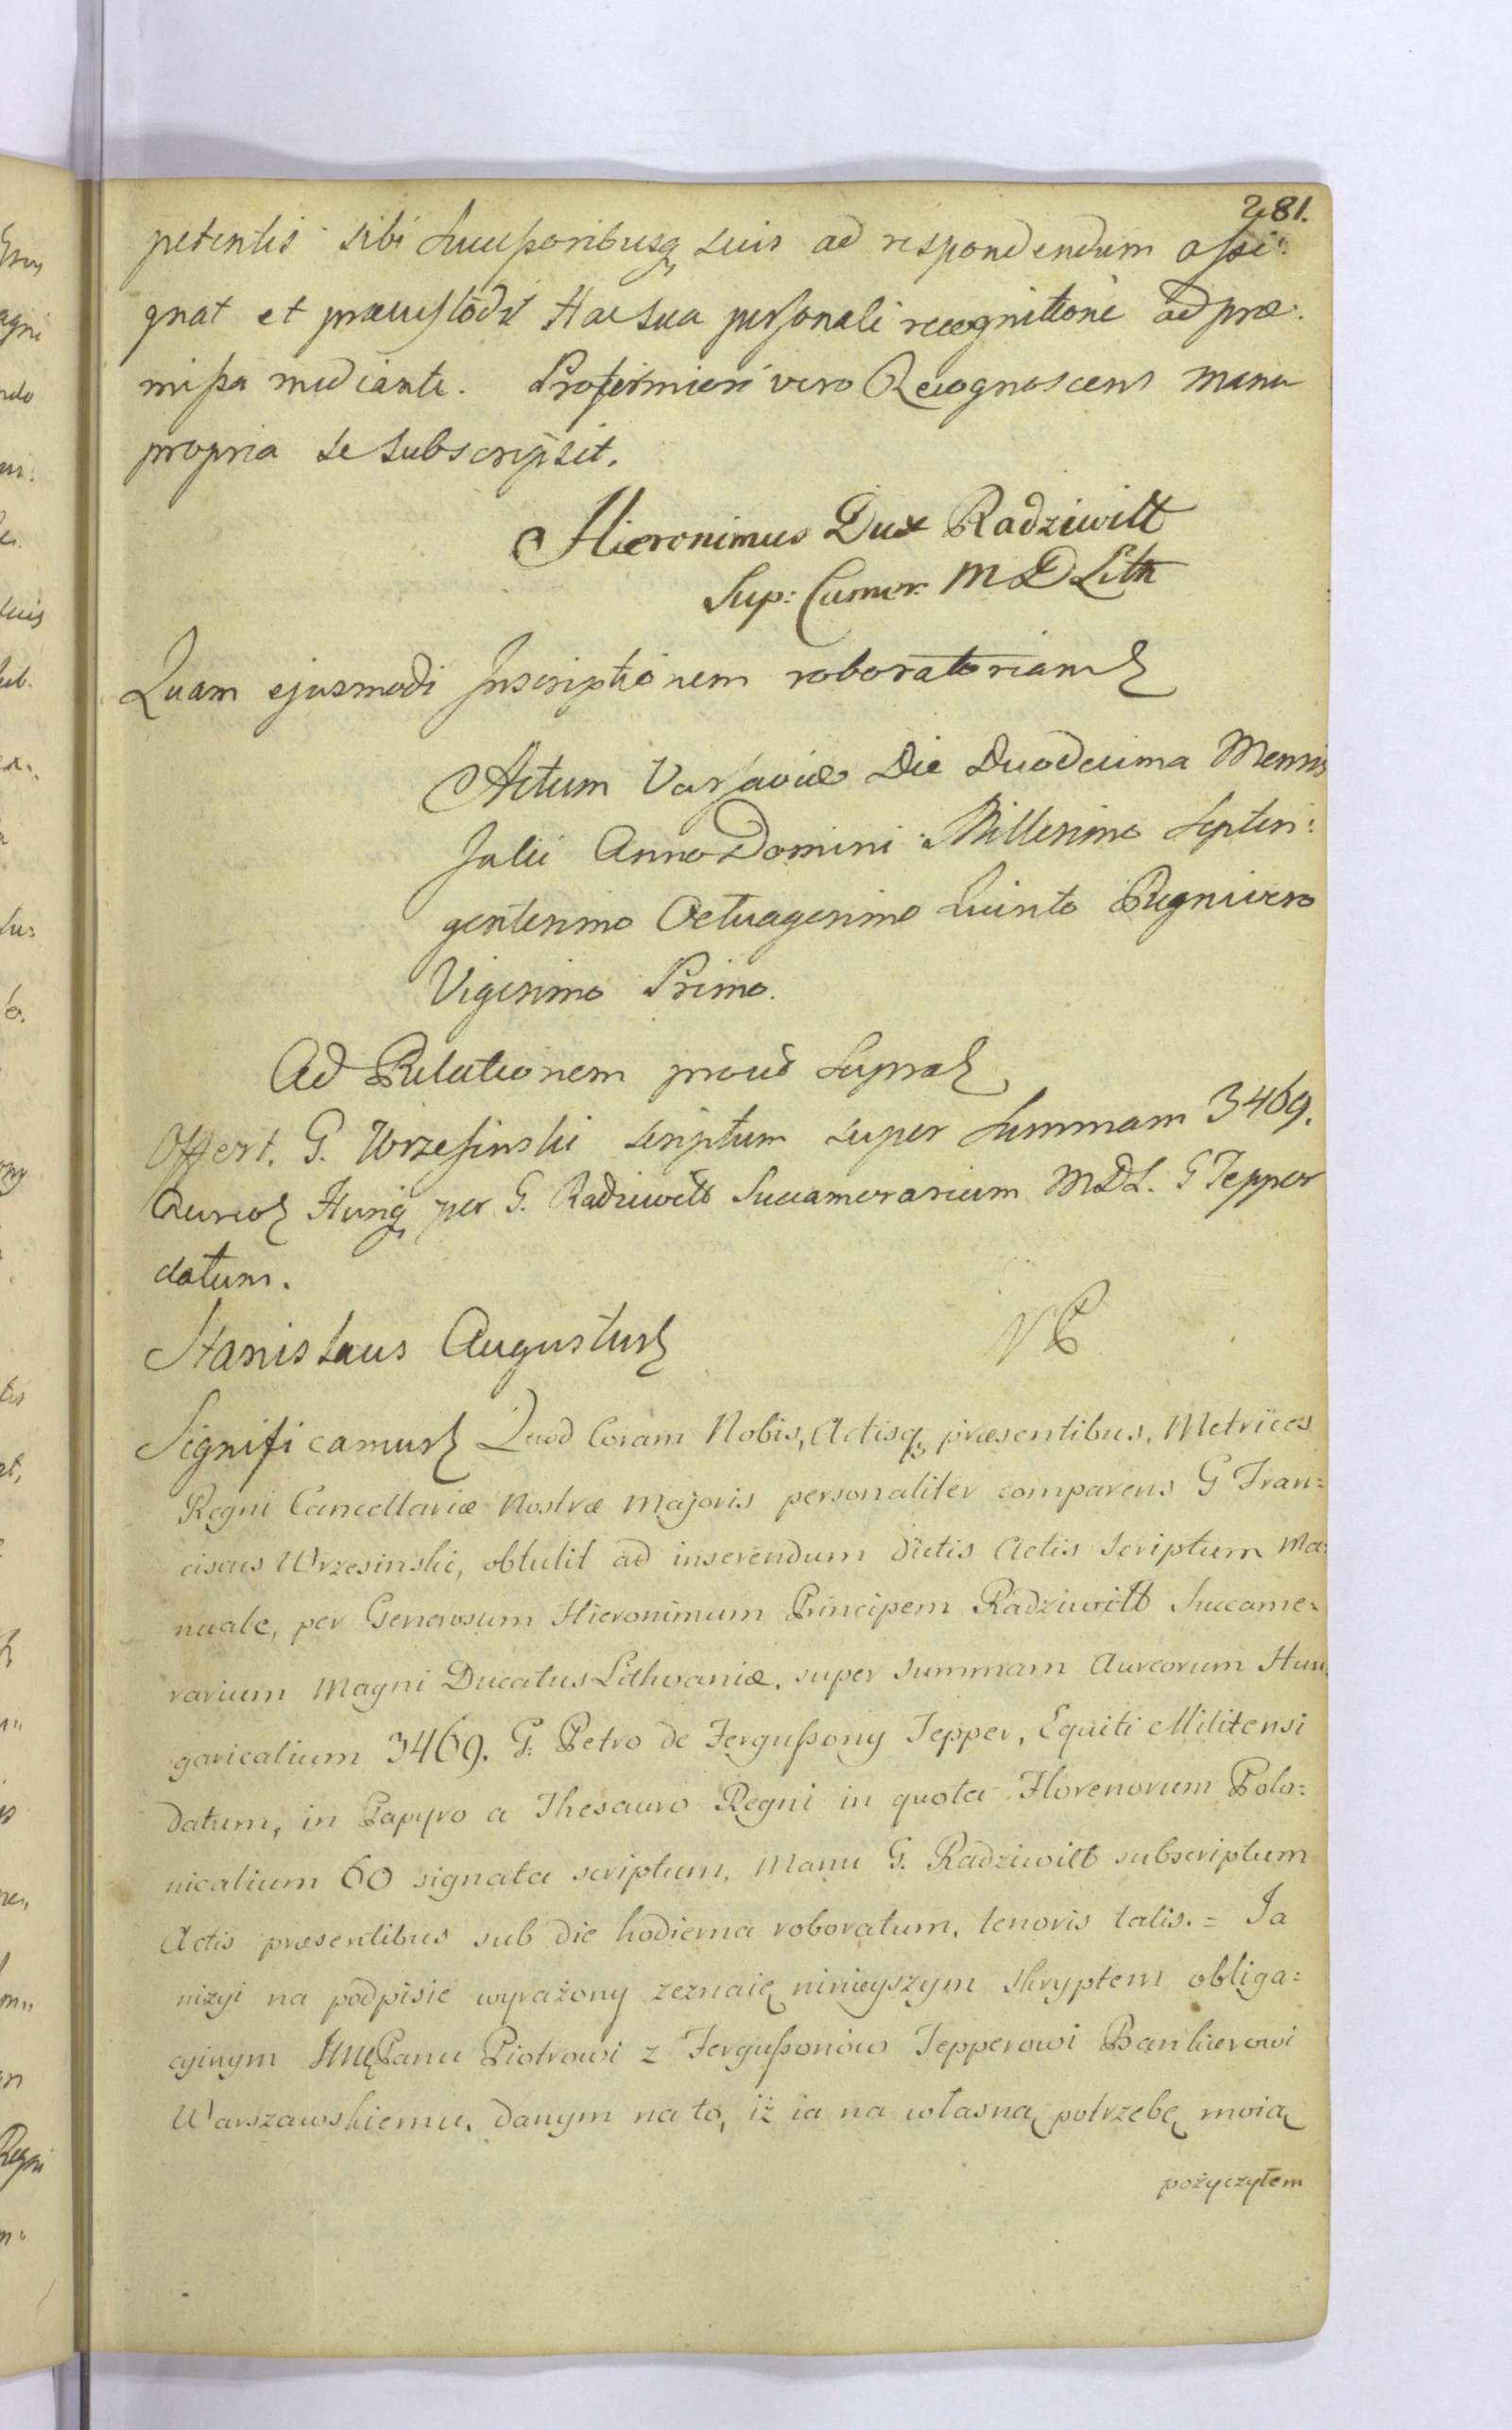 281.
petentis sibi Successoribusq suis ad respondendum assi:
gnat et præcustodit Hac sua personali recognitione ad præ:
missa mediante. Pro firmiori vero Recognoscens manu
propria se subscripsit.
Hieronimus Dux Radziwiłł
Sup: Camer: M D Lith
Quam ejusmodi Inscriptionem roboratoriam
Actum Varsaviæ Die Duodecima Mensis
Julii Anno Domini Millesimo Septin:
gentesimo Octuagesimo Quinto Regni vero
Vigesimo Primo.
Ad Relationem prout Supra
Offert. G. Wrzesinski scriptum super Summam 3469.
Aureor Hung per G. Radziwiłł Succamerarium MDL. G Tepper
datum.
Stanislaus Augustus
Significamus Quod Coram Nobis, Actisq præsentibus, Metrices
Regni Cancellariæ Nostræ Majoris personaliter comparens G Fran=
ciscus Wrzesinski, obtulit ad inserendum dictis Actis Scriptum Ma:
nuale, per Generosum Hieronimum Principem Radziwiłł Succame=
rarium Magni Ducatus Lithvaniæ, super summam Aureorum Hun
garicalium 3469. G: Petro de Fergussony Tepper, Equiti Militensi
datum, in Papyro a Thesauro Regni in quota Florenorum Polo=
nicalium 60 signata scriptum, Manu G. Radziwiłł subscriptum
Actis præsentibus sub die hodierna roboratum, tenoris talis. = Ja
niżyi na podpisie wyrażony zeznaię ninieyszym Skryptem obliga=
cyinym JmęPanu Piotrowi z Fergussonów Tepperowi Bankierowi
Warszawskiemu, danym na to, iż ia na własną potrzebę moią
pożyczyłem